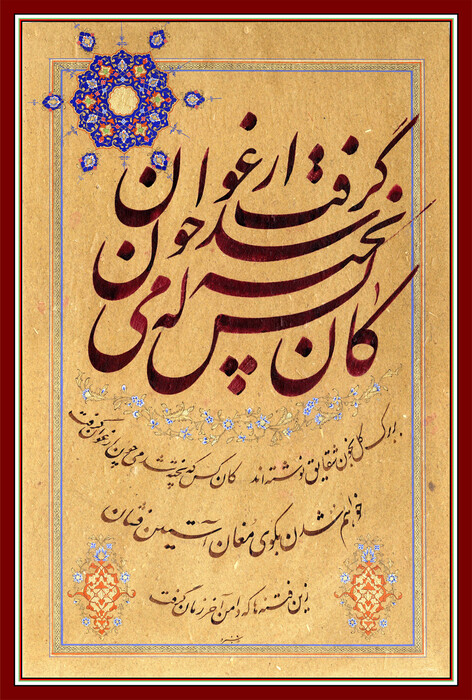 کان کس که پخته شد می چون ارغوان گرفت
بر برگ گل بخون شقایق نوشته اند کان کس که پخته شد می چون ارغوان گرفت
خواهم شدن بکوی مغان آستین فشان
زین فتنه ها که دامن آخر زمان گرفت